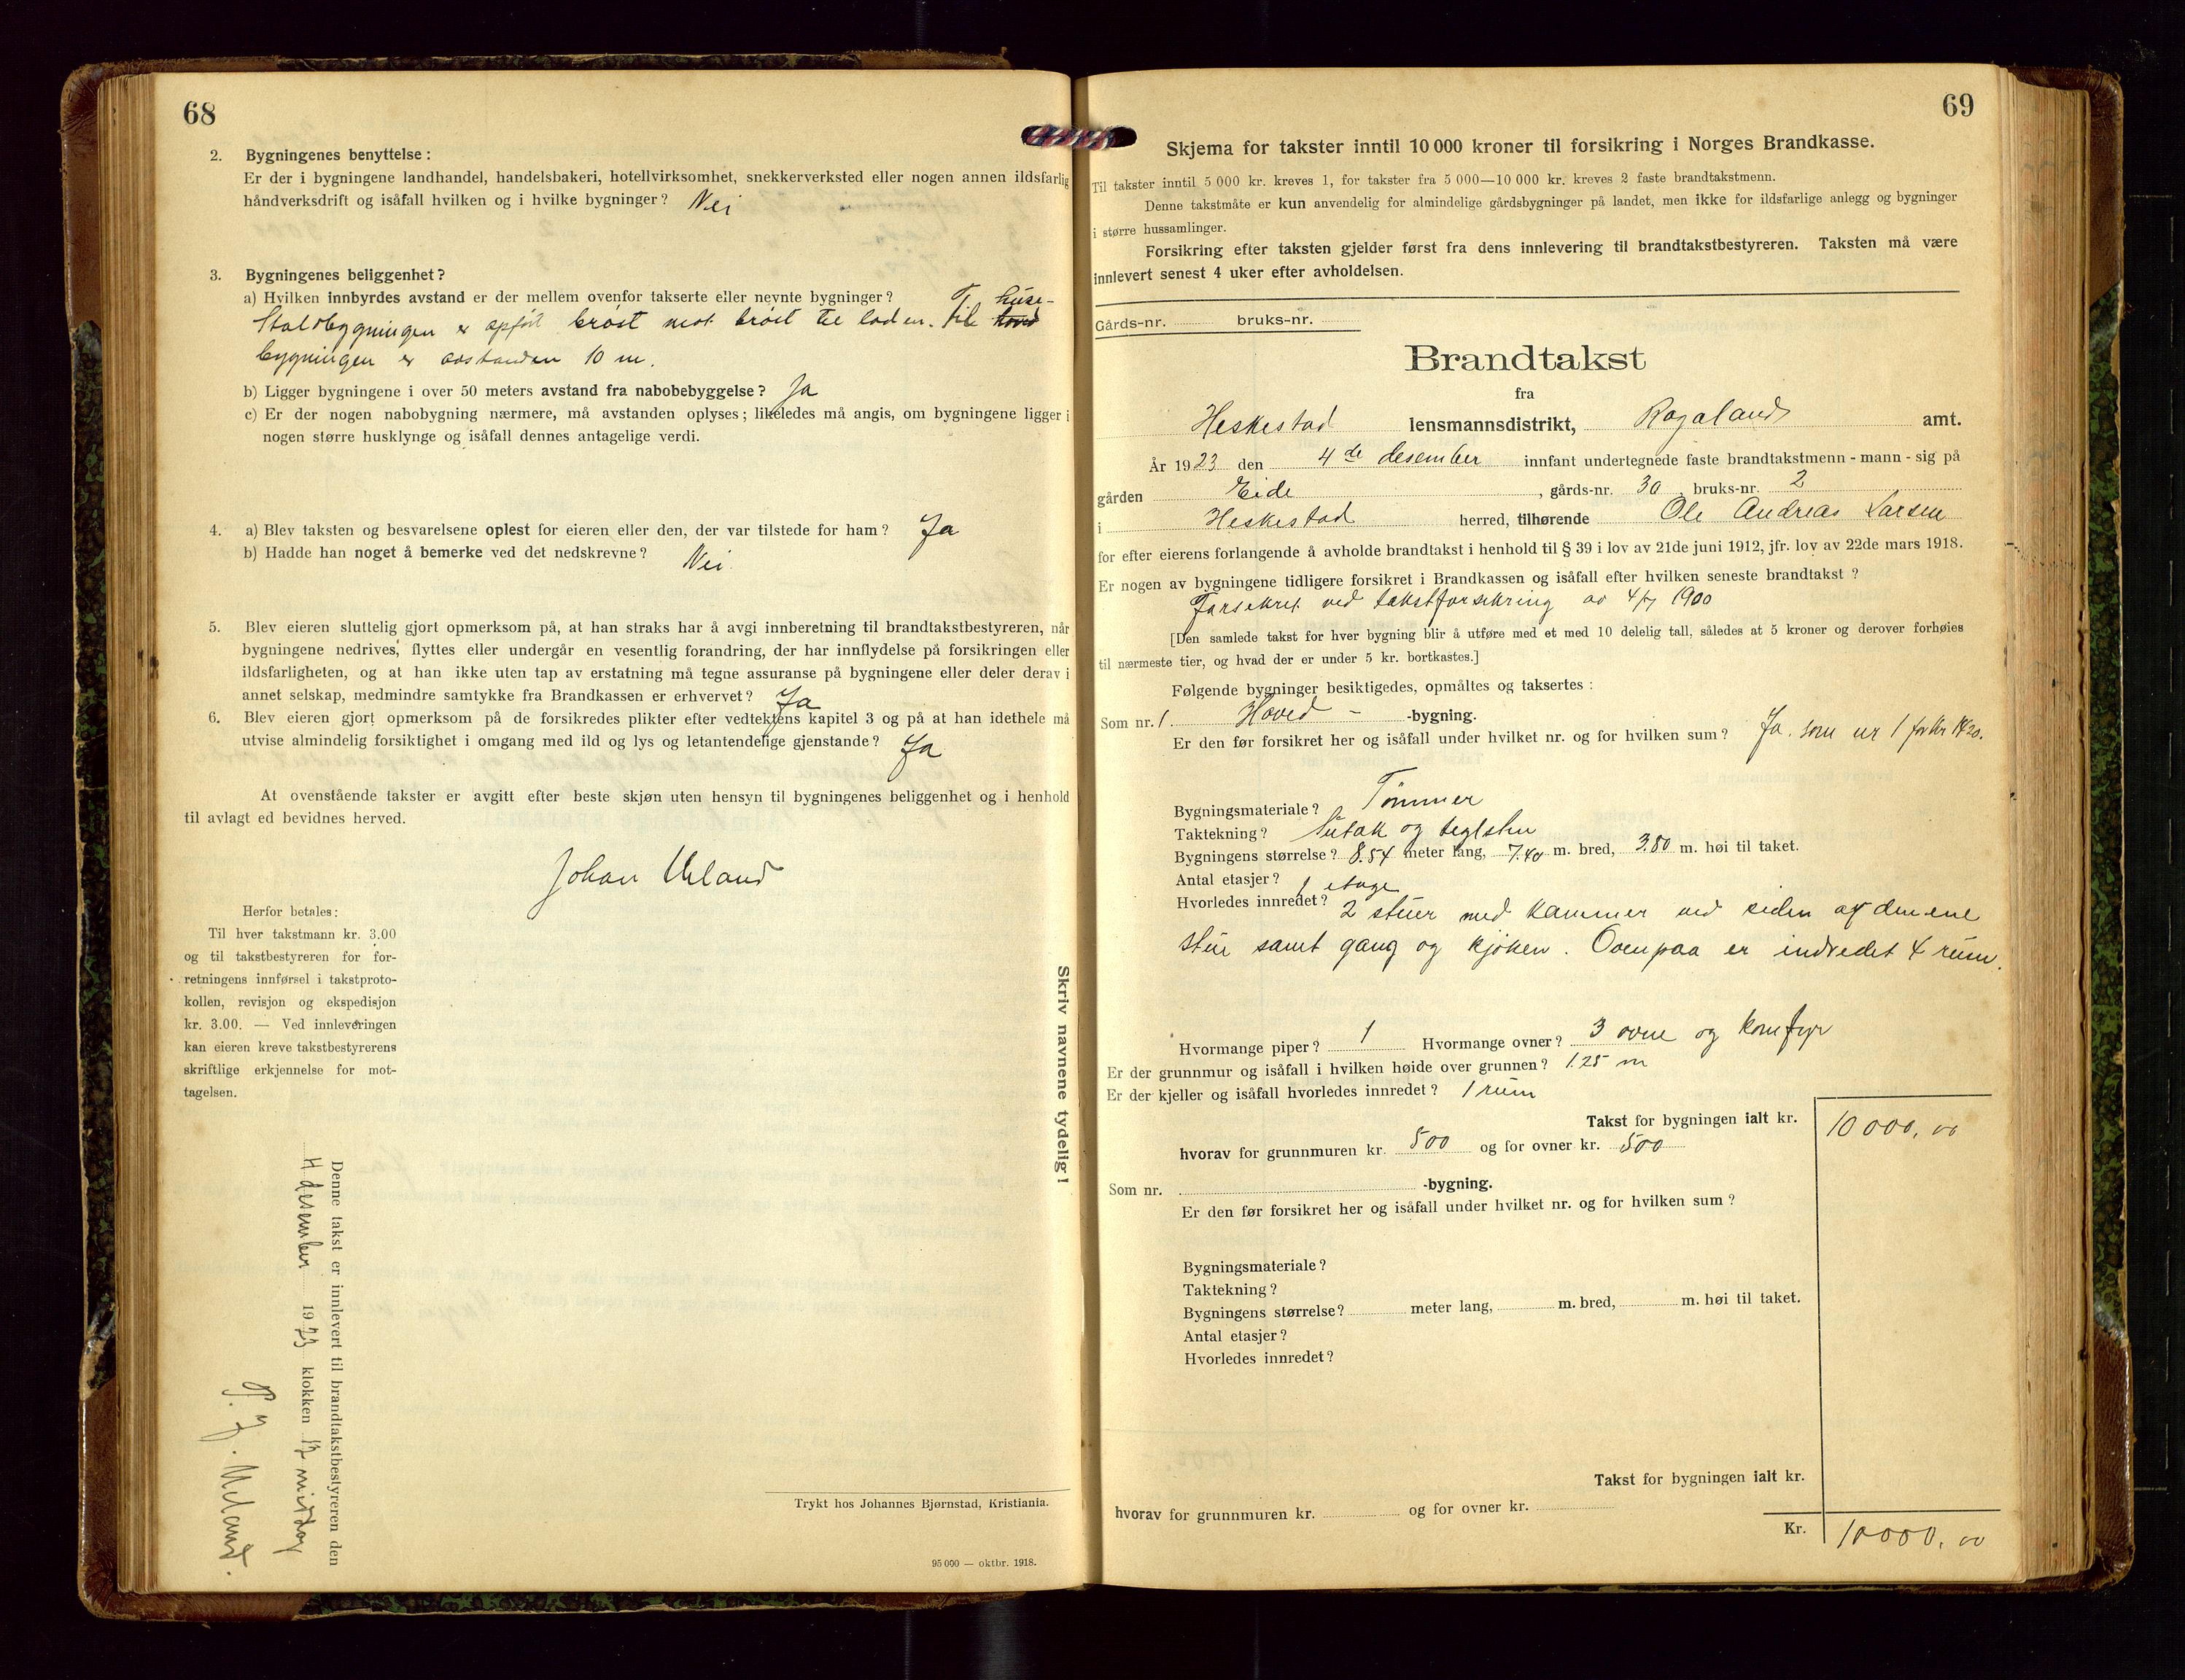 68
2. Bygningenes benyttelse:
Er der i bygningene landhandel, handelsbakeri, hotellvirksomhet, snekkerverksted eller nogen annen ildsfarlig
håndverksdrift og isåfall hvilken og i hvilke bygninger? Nei
3. Bygningenes beliggenhet?
a) Hvilken innbyrdes avstand er der mellem ovenfor takserte eller nevnte bygninger?
Staldbygningen er opført brøst mot brøst til laden. Til huse-
bygningen er avstanden 10 m.
b) Ligger bygningene i over 50 meters avstand fra nabobebyggelse? Ja
c) Er der nogen nabobygning nærmere, må avstanden oplyses; likeledes må angis, om bygningene ligger i
nogen større husklynge og isåfall dennes antagelige verdi.
4. a) Blev taksten og besvarelsene oplest for eieren eller den, der var tilstede for ham? Ja
b) Hadde han noget å bemerke ved det nedskrevne? Nei.
5. Blev eieren sluttelig gjort opmerksom på, at han straks har å avgi innberetning til brandtakstbestyreren, når
bygningene nedrives, flyttes eller undergår en vesentlig forandring, der har innflydelse på forsikringen eller
ildsfarligheten, og at han ikke uten tap av erstatning må tegne assuranse på bygningene eller deler derav i
annet selskap, medmindre samtykke fra Brandkassen er erhvervet? Ja
6. Blev eieren gjort opmerksom på de forsikredes plikter efter vedtektens kapitel 3 og på at han idethele må
utvise almindelig forsiktighet i omgang med ild og lys og letantendelige gjenstande? Ja
At ovenstående takster er avgitt efter beste skjøn uten hensyn til bygningenes beliggenhet og i henhold
til avlagt ed bevidnes herved.
Johan Ueland
Herfor betales:
Til hver takstmann kr. 3.00
og til takstbestyreren for for-
retningens innførsel i takstproto-
kollen, revisjon og ekspedisjon
kr. 3.00. — Ved innleveringen
kan eieren kreve takstbestyrerens
skriftlige erkjennelse for mot-
tagelsen.
Skriv navnene tydelig!
Denne takst er innlevert til brandtakstbestyreren den
4 desember 1923 klokken 12 middag
P. J. Ueland.
Trykt hos Johannes Bjørnstad, Kristiania.
95 000 — oktbr. 1918.
69
Skjema for takster inntil 10 000 kroner til forsikring i Norges Brandkasse.
Til takster inntil 5 000 kr. kreves 1, for takster fra 5 000—10 000 kr. kreves 2 faste brandtakstmenn.
Denne takstmåte er kun anvendelig for almindelige gårdsbygninger på landet, men ikke for ildsfarlige anlegg og bygninger
i større hussamlinger.
Forsikring efter taksten gjelder først fra dens innlevering til brandtakstbestyreren. Taksten må være
innlevert senest 4 uker efter avholdelsen.
Gårds-nr. bruks-nr.
Brandtakst
fra
Heskestad lensmannsdistrikt, Rogaland amt.
År 1923 den 4de desember innfant undertegnede faste brandtakstmenn - mann - sig på
gården Eide, gårds-nr. 30 bruks-nr. 2
i Heskestad herred, tilhørende Ole Andreas Larsen
for efter eierens forlangende å avholde brandtakst i henhold til § 39 i lov av 21de juni 1912, jfr. lov av 22de mars 1918.
Er nogen av bygningene tidligere forsikret i Brandkassen og isåfall efter hvilken seneste brandtakst?
Forsikret ved takstforsikring av 4/7 1900
[Den samlede takst for hver bygning blir å utføre med et med 10 delelig tall, således at 5 kroner og derover forhøies
til nærmeste tier, og hvad der er under 5 kr. bortkastes.]
Følgende bygninger besiktigedes, opmåltes og taksertes:
Som nr. 1. Hoved - -bygning.
Er den før forsikret her og isåfall under hvilket nr. og for hvilken sum? Ja. som nr 1 for kr
Bygningsmateriale? Tømmer
Taktekning? Sutak og teglsten
Bygningens størrelse? 8.54 meter lang, 7.40 m. bred, 3.80 m. høi til taket.
Antal etasjer? 1 etage
Hvorledes innredet? 2 stuer med kammer ved siden af den ene
stue samt gang og kjøken. Ovenpaa er indredet 4 rum.
Hvormange piper? 1 Hvormange ovner? 3 ovne og komfyr
Er der grunnmur og isåfall i hvilken høide over grunnen? 1.25 m
Er der kjeller og isåfall hvorledes innredet? 1 rum
Takst for bygningen ialt kr. 10 000,00
hvorav for grunnmuren kr. 500 og for ovner kr. 500
Som nr. -bygning.
Er den før forsikret her og isåfall under hvilket nr. og for hvilken sum?
Bygningsmateriale?
Taktekning?
Bygningens størrelse? meter lang, m. bred, m. høi til taket.
Antal etasjer?
Hvorledes innredet?
Takst for bygningen ialt kr.
hvorav for grunnmuren kr. og for ovner kr.
Kr. 10000,00